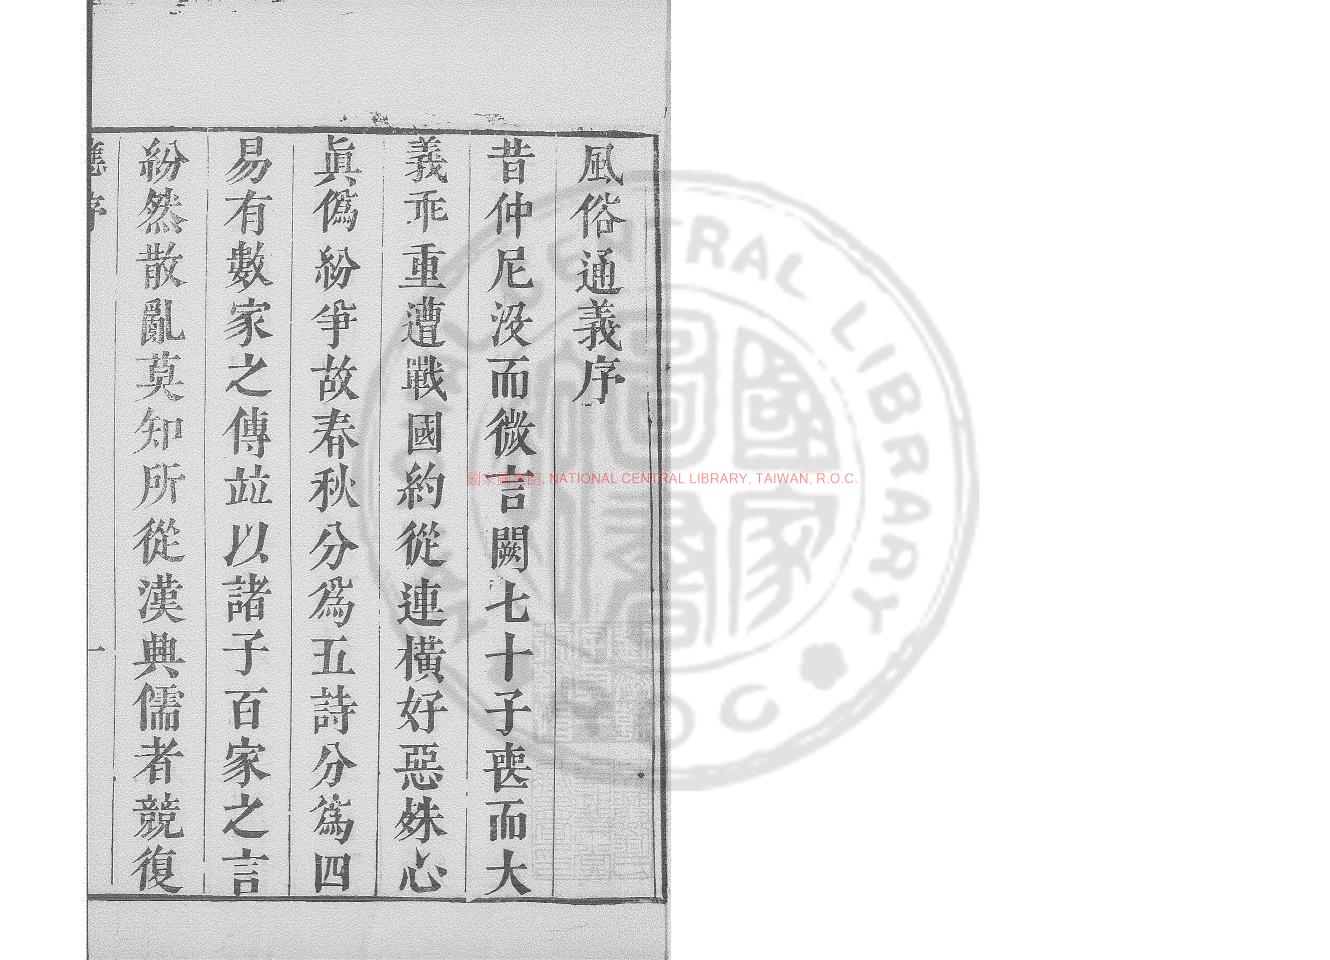 風俗通義序
昔仲尼没而微言闕七十子喪而大
義乖重遭戰國約從連橫好惡殊心
眞僞紛爭故春秋分爲五詩分爲四
易有數家之傳並以諸子百家之言
紛然散亂莫知所從漢興儒者競復
應序
一
國家圖書館, NATIONAL CENTRAL LIBRARY, TAIWAN, R.O.C.